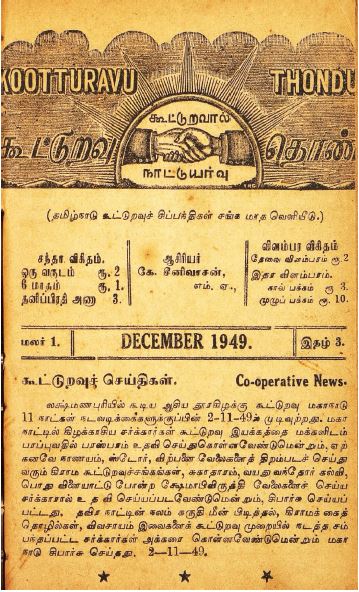 KOOTTURAVU THONDU
கூட்டுறவு தொண்
கூட்டுறவால்
நாட்டுயர்வு
(தமிழ்நாடு கூட்டுறவுச் சிப்பந்திகள் சங்க மாத வெளியீடு.)
சந்தா விகிதம்.
ஒரு வருடம் ரூ. 2
6 மாதம் ரூ. 1.
தனிப்பிரதி அணா 3.
ஆசிரியர்
கே. சீனிவாசன்,
எம். ஏ.,
விளம்பர விகிதம்
தேவை விளம்பரம் ரூ 2
இதர விளம்பரம்.
கால் பக்கம் ரூ 3.
முழுப் பக்கம் ரூ. 10.
மலர் 1. DECEMBER 1949. இதழ் 3.
கூட்டுறவுச் செய்திகள். Co-operative News.
லக்ஷ்மணபுரியில் கூடிய ஆசிய தூரகிழக்கு கூட்டுறவு மகாநாடு
11 நாட்கள் நடவடிக்கைகளுக்குப்பின் 2-11-49ல் முடிவுற்றது. மகா
நாட்டில் கிழக்காசிய சர்க்கார்கள் கூட்டுறவு இயக்கத்தை மக்களிடம்
பரப்புவதில் பரஸ்பரம் உதவி செய்துகொள்ளவேண்டுமென்றும், ஏற்
கனவே நாணயம், ஸ்டோர், விற்பனை வேலைகளைத் திறம்படச் செய்து
வரும் கிராம கூட்டுறவுச்சங்கங்கள், சுகாதாரம், வயது வந்தோர் கல்வி,
பொது விளையாட்டு போன்ற க்ஷேமாபிவிருத்தி வேலைகளைச் செய்ய
சர்க்காரால் உதவி செய்யப்படவேண்டுமென்றும், சிபார்சு செய்யப்
பட்டது. தவிர நாட்டின் நலம் கருதி மீன் பிடித்தல், கிராமக் கைத்
தொழில்கள், விவசாயம் இவைகளைக் கூட்டுறவு முறையில் நடத்த சம்
பந்தப்பட்ட சர்க்கார்கள் அக்கரை கொள்ளவேண்டுமென்றும் மகா
நாடு சிபார்சு செய்தது. 2—11—49.